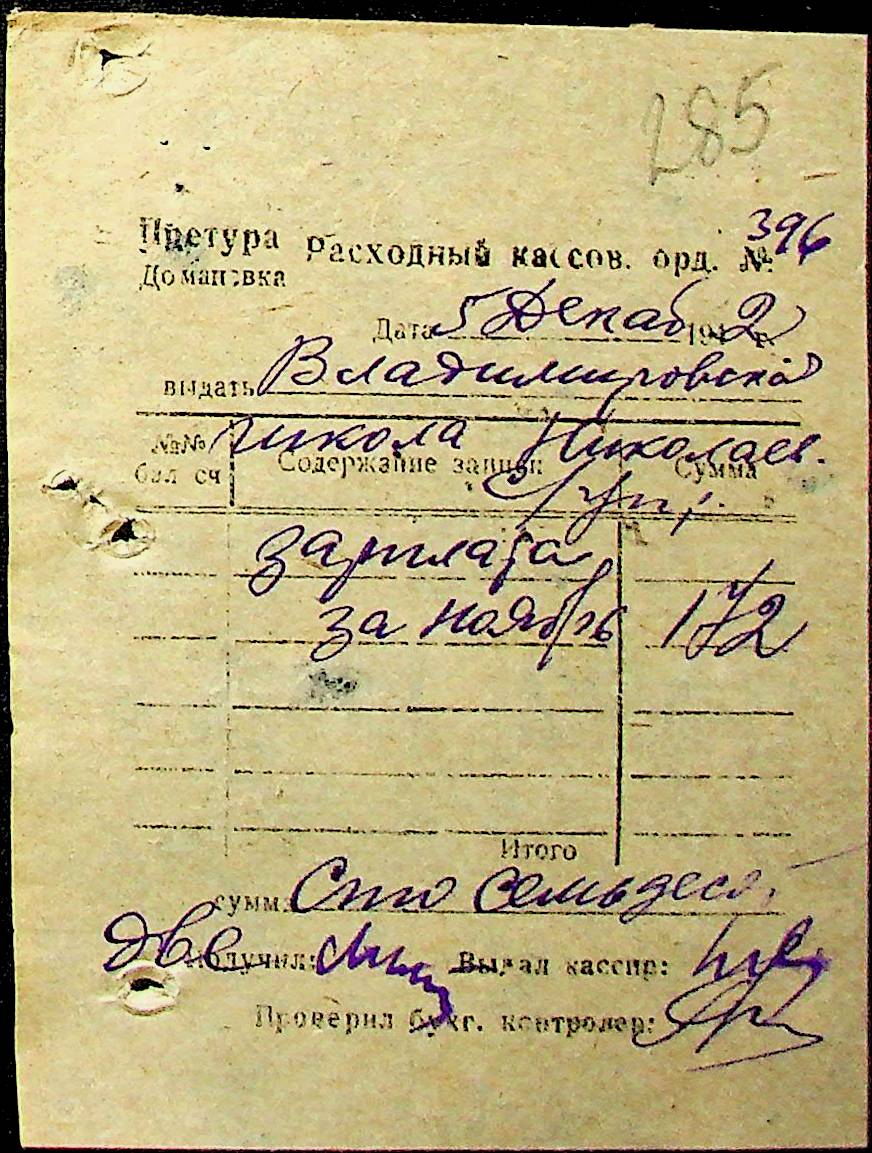 285
Претура Расходный кассов. орд. № 396
Домановка
Дата 5 Декаб 194 2 г.
выдать Владимировская
школа Николаев.
№№ Содержание записи Сумма
бал сч
зарплата
за ноябрь 172
Итого
сумм. Сто семьдеся.
две Получил: Выдал кассир:
Проверил бухг. контролер: